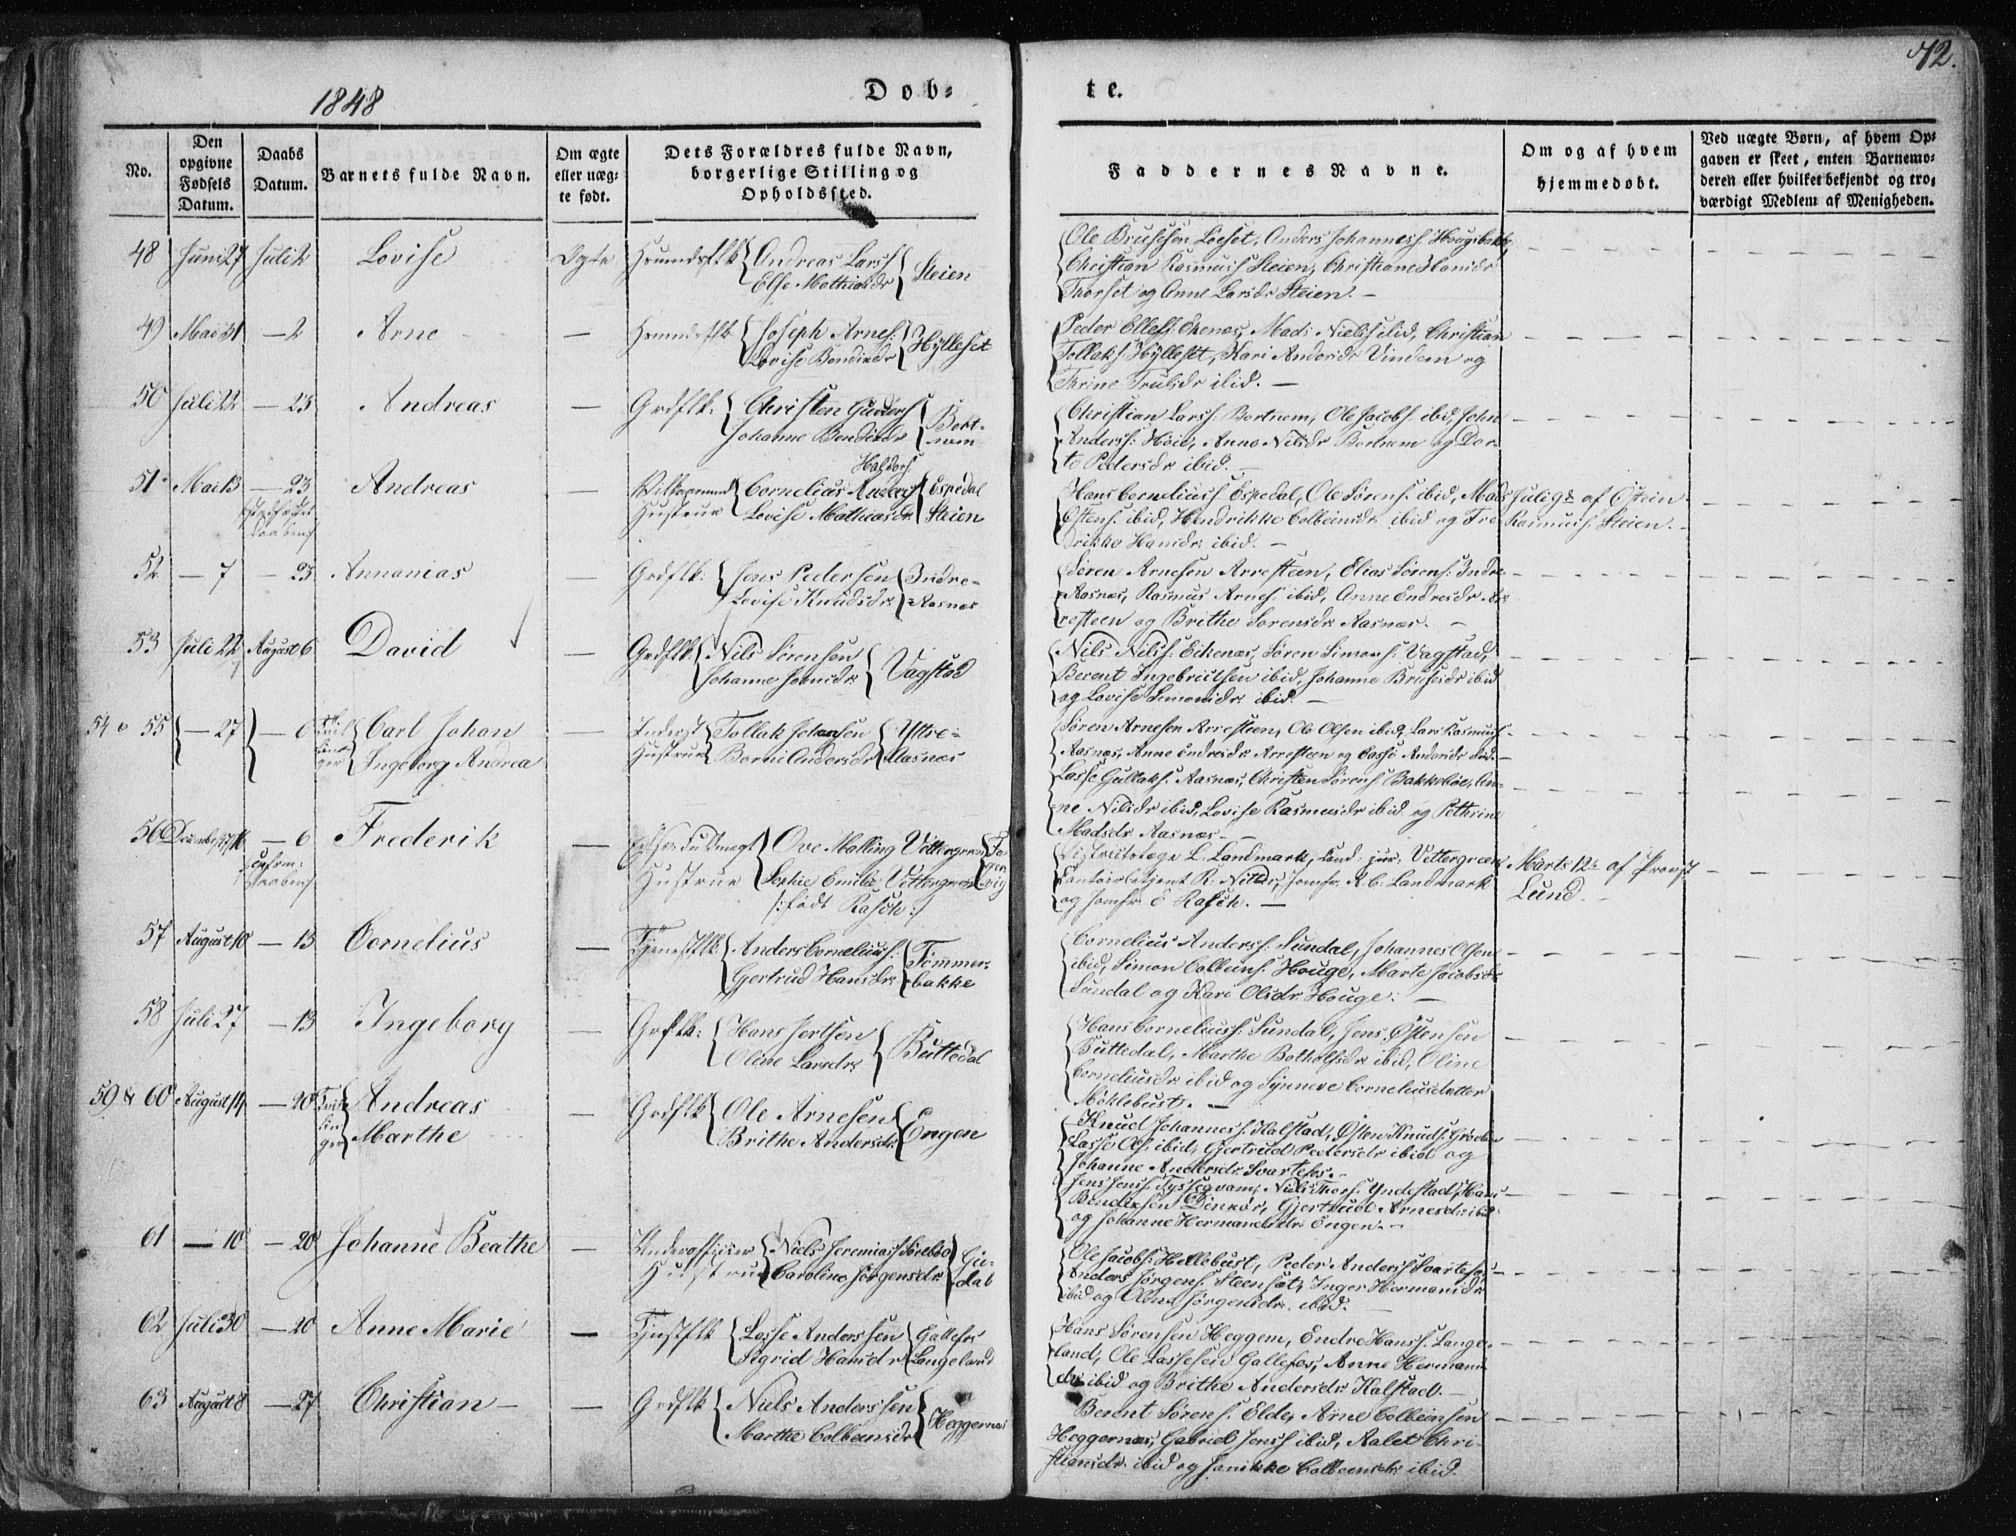 72.
1848
Døb-
te.
No.
Den opgivne Fødsels Datum.
Daabs Datum.
Barnets fulde Navn.
Om ægte eller uæg- te født.
Dets Forældres fulde Navn, borgerlige Stilling og Opholdssted.
Faddernes Navne.
Om og af hvem hjemmedøbt.
Ved uægte Børn, af hvem Op- gaven er skeet, enten Barnemo- deren eller hvilket bekjendt og tro- værdigt Medlem af Menigheden.
48 Juni 27 Juli 2 Lovise Ægte Andreas Larss Steien
Else Mathiasdr
Ole Brusesen Løeset, Anders Johanness Hougsbakk,
Christian Rasmuss Steien, Christiane Hansdr
Thorset og Anne Larsdr Steien. —
49 Mai 31 — 2 Arne — Joseph Arnes: Hylleset
Lovise Bendixdr
Peder Elless: Ekenæs, Mads Niels ibid, Christian
Tollaks Hylleset, Kari Andersdr Vindem og
Thrine Trulsdr ibid. —
50 Juli 22 — 23 Andreas — Grdflk: Christen Gunders Bort-
Johanne Bendixdr nem
Christian Larss: Bortnem, Ole Jacobs: ibid, John
Anderss: Høie, Anne Nilsdr Bortnem og Dor-
te Pedersdr ibid. —
Haldors:
51 Mai 13 — 23 Andreas — Cornelius Anders Espedal
Hustrue Lovise Mathiasdr Steien
Hans Corneliuss: Espedal, Ole Sørens: ibid, Mads
Østens: ibid, Hendrikke Colbeinsdr ibid og Fre-
drikke Hansdr ibid. —
Juli 9de af Østein
Rasmuss: Steien. —
52 — 7 — 23 Annanias — Grdflk: Jens Pedersen Indre-
Lovise Knudsdr Aasnæs
Søren Arnesen Arresteen, Elias Sørens: Indre-
Aasnæs, Rasmus Arnes: ibid, Anne Endresdr Ar-
resteen og Brithe Sørensdr Aasnæs. —
53 Juli 22 August 6 David — Grdflk: Nils Sørensen Vagstad
Johanne
Nils Nilss: Eikenæs, Søren Simons: Vagstad,
Berent Ingebrictsen ibid, Johanne Brusesdr ibid
og Lovise Simonsdr ibid. —
54 o 55 — 27 — 6 Tvil- lin- ger Carl Johan — Inderst Tollak Johansen Yttre-
Ingeborg Andrea Hustrue Borni Andersdr Aasnæs
Søren Arnesen Arresteen, Ole Olsen ibid, Lars Rasmuss
Aasnæs, Anne Endresdr Arresteen og Lasse Andersdr ibid. —
Lasse Gullaks: Aasnæs, Christen Sørens: Bakkebøe, An-
ne Nilsdr ibid, Lovise Rasmusdr ibid og Pethrine
Madsdr Aasnæs. —
56 December — 6 Frederik — Ove Malling Vettergreen
Hustrue Sophie Emilie Vettergreen
/: født Rasch :/
Districtslæge L. Landmark, Cand: jur: Vettergreen,
Contoirbetjent R. Nitter, Jomfr: K. C. Landmark
og Jomfr E Rasch. —
Marts 12te af Provst
Lund.
57 August 10 — 13 Cornelius — Tjenestflk: Anders Corneliuss: Tømmer-
Gjertrud Hansdr bakke
Cornelius Anderss: Sundal, Johannes Olsen
ibid, Simon Colbeins: Houge, Marte Jacobsdr
Sundal og Kari Olsdr Houge: —
58 Juli 27 — 13 Ingeborg — Grflk: Hans Jertsen Buttedal
Oline Larsdr
Hans Corneliuss: Sundal, Jens Østensen
Buttedal, Marthe Botholfsdr ibid, Oline
Corneliusdr ibid og Synneve Corneliusdatter
Møklebust. —
59 & 60 August 14 — 20 Tvil- lin- ger Andreas — Grdflk Ole Arnesen Engen
Marthe Brithe Andersdr
Knud Johanness: Kalstad, Østen Knuds:
Lasse Ols: ibid, Gjertrud Pedersdr ibid og
Johanne Andersdr Svartefos. —
Jens Jenss: Tyssegvam, Niels Thors: Yndestad, Hans
Bendixsen, Gjertrud Arnesdr ibid
og Johanne Hermansdr Engen. —
61 — 10 — 20 Johanne Beathe — Underofficier Niels Jeremiass Sørebø
Hustrue Caroline Jørgensdr
Ole Jacobs: Hellebust, Peder Anderss Svartefos,
Anders Jørgens: Steenset, Inger Hermansdr
ibid og Oline Jørgensdr. ibid. —
62 Juli 30 — 20 Anne Marie — Tjnstflk Lasse Anderssen Gallefos
Sigrid Hansdr Langeland
Hans Sørensen Heggem, Endre Hanss: Lange-
land, Ole Lassesen Gallefos, Anne Hermans-
dr ibid og Brithe Andersdr Kalstad. —
63 August 8 — 27 Christian — Grdflk Niels Anderssen Heggernæs
Marthe Colbeinsdr
Berent Sørens: Elde, Arne Colbeinsen
Heggernæs, Gabriel Jenss ibid, Aalet Chri-
stiansdr. ibid og Jannikke Colbeensdr ibid.